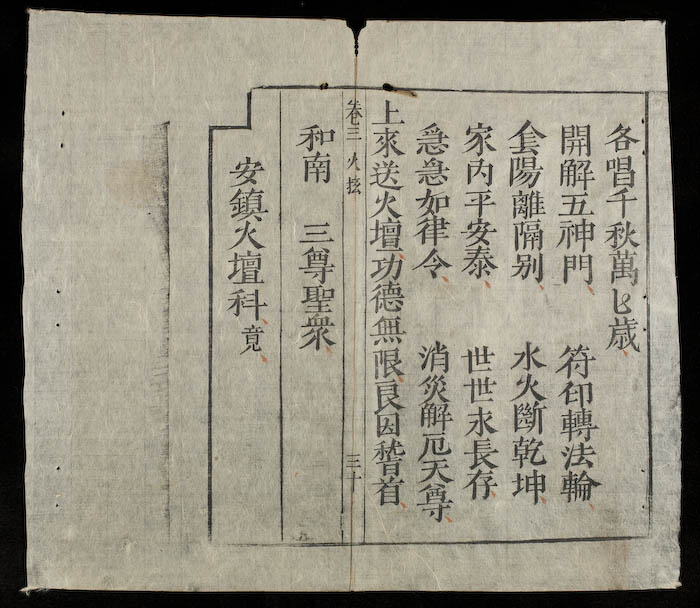 各唱千秋萬匕歳
開解五神門　符印轉法輪
套陽離隔别　水火斷乾坤
家内平安泰　世世永長存
急急如律令　消災解厄天尊
上來送火壇功德無限良因稽首
卷三　火　三十
和南　三尊聖衆
安鎮火壇科竟